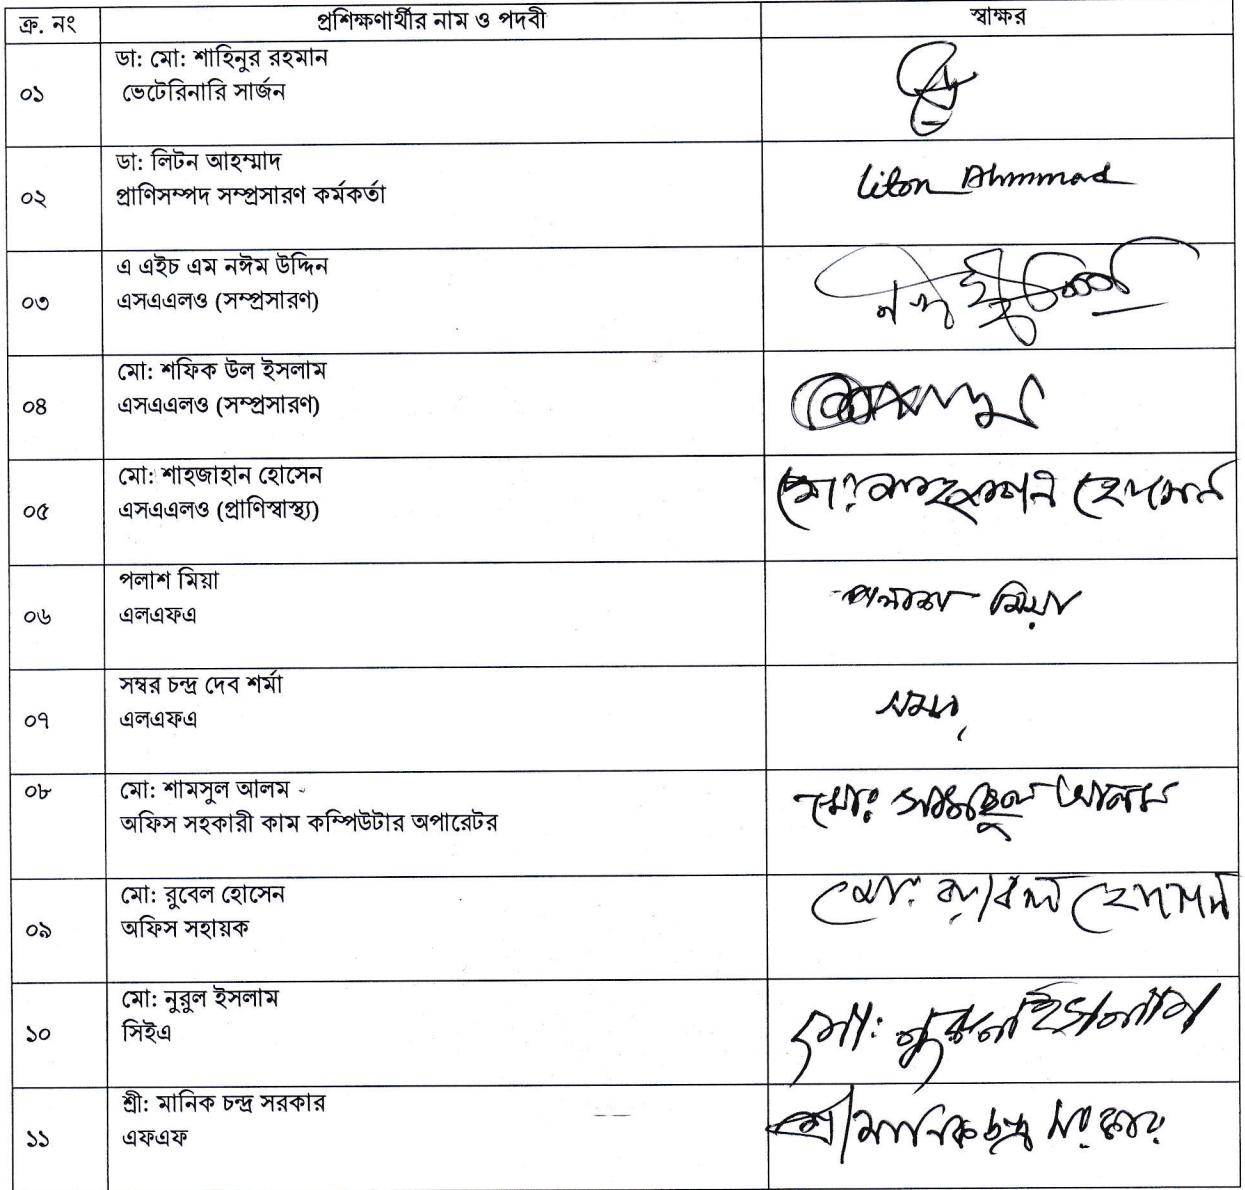 ক্র. নং প্রশিক্ষণার্থীর নাম ও পদবী স্বাক্ষর
ডা: মো: শাহিনুর রহমান
০১ ভেটেরিনারি সার্জন
ডা: লিটন আহম্মাদ
০২ প্রাণিসম্পদ সম্প্রসারণ কর্মকর্তা Liton Ahmmad
এ এইচ এম নঈম উদ্দিন
০৩ এসএএলও (সম্প্রসারণ)
মো: শফিক উল ইসলাম
০৪ এসএএলও (সম্প্রসারণ)
মো: শাহজাহান হোসেন
০৫ এসএএলও (প্রাণিস্বাস্থ্য) মো: শাহজাহান হোসেন
পলাশ মিয়া
০৬ এলএফএ পলাশ মিয়া
সম্বর চন্দ্র দেব শর্মা
০৭ এলএফএ
০৮ মো: শামসুল আলম মো: সামছুল আলম
অফিস সহকারী কাম কম্পিউটার অপারেটর
মো: রুবেল হোসেন
০৯ অফিস সহায়ক মো: রুবেল হোসেন
মো: নুরুল ইসলাম
১০ সিইএ মো: নুরুল ইসলাম
শ্রী: মানিক চন্দ্র সরকার
১১ এফএফ শ্রী মানিক চন্দ্র সরকার